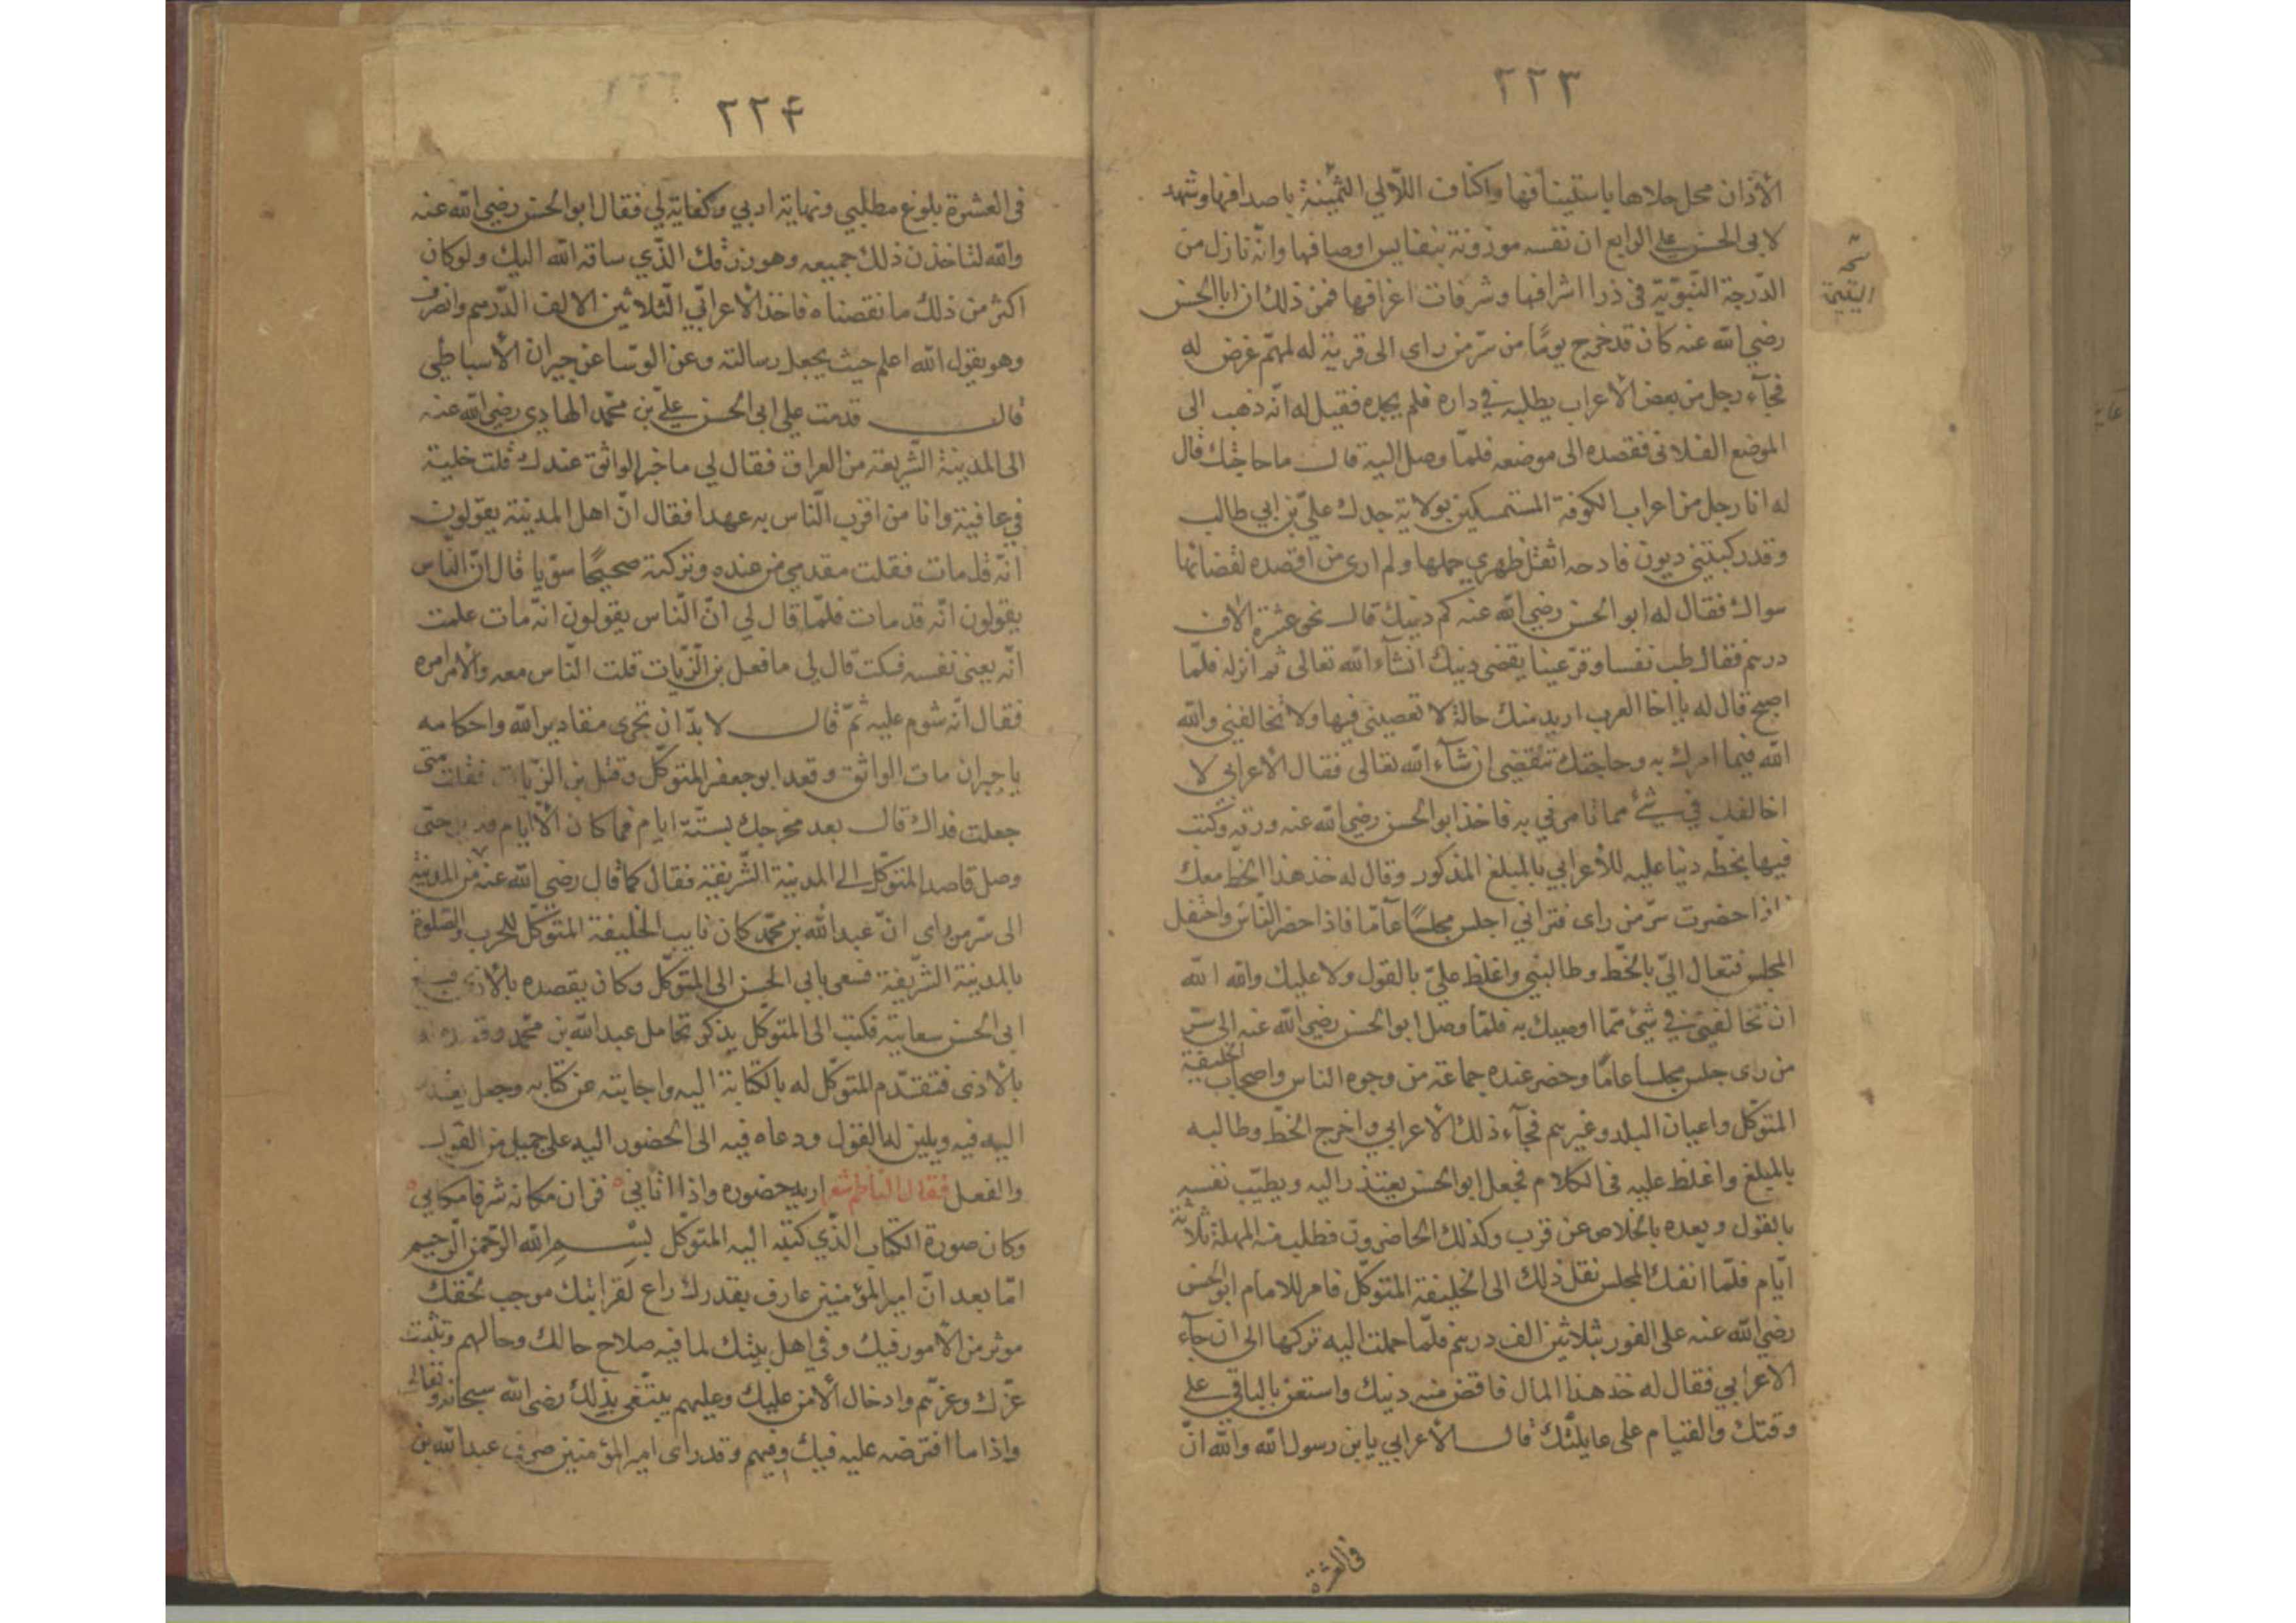 ٢٢٣
الأذان محل حلاها باستيناقها واكناف اللآلي الثمينة باصدافها وشهد
لابى الحسن علي الرابع ان نفسه موزونة بنفايس اوصافها وانه نازل من
الدرجة النبوية في ذرا اشرافها وشرفات اعرافها فمن ذلك ان ابا الحسن
رضي الله عنه كان قد خرج يوما من سر من راى الى قرية له لمهم عرض له
فجآء رجل من بعض الأعراب يطلبه في داره فلم يجده فقيل له انه ذهب الى
الموضع الفلانى فقصده الى موضعه فلما وصل اليه قال ما حاجتك قال
له انا رجل من اعراب الكوفة المستمسكين بولاية جدك علي بن ابي طالب
وقد ركبتني ديون فادحه اثقل ظهري حملها ولم ارى من اقصده لقضائها
سواك فقال له ابو الحسن رضي الله عنه كم دينك قال نحو عشرة الاف
درهم فقال طب نفسا وقر عينا يقضى دينك انشآء الله تعالى ثم انزله فلما
اصبح قال له يا اخا العرب اريد منك حالة لا تعصيني فيها ولا تخالفني والله
الله فيما امرك به وحاجتك تنقضي ان شآء الله تعالى فقال الأعرابي لا
اخالفك في شئ مما تامرني به فاخذ ابو الحسن رضي الله عنه ورقه وكتب
فيها بخطه دينا عليه للأعرابي بالمبلغ المذكور وقال له خذ هذا الخط معك
فاذا حضرت سر من راى فتراني اجلس مجلسا عاما فاذا حضر الناس واحتفل
المجلس فتعال الي بالخط وطالبني واغلظ علي بالقول ولا عليك والله الله
ان تخالفني في شئ مما اوصيك به فلما وصل ابو الحسن رضي الله عنه الى سر
من راى جلس مجلسا عاما وحضر عنده جماعة من وجوه الناس واصحاب الخليفة
المتوكل واعيان البلد وغيرهم فجآء ذلك الأعرابي واخرج الخط وطالبه
بالمبلغ واغلظ عليه فى الكلام فجعل ابو الحسن يعتذر اليه ويطيب نفسه
بالقول ويعده بالخلاص عن قرب وكذلك الحاضرون فطلب منه المهلة ثلاثة
ايام فلما انفك المجلس نقل ذلك الى الخليفة المتوكل فامر للامام ابو الحسن
رضي الله عنه على الفور بثلاثين الف درهم فلما حملت اليه تركها الى ان جآء
الأعرابي فقال له خذ هذا المال فاقض منه دينك واستعن بالباقي على
وقتك والقيام على عايلتك قال الأعرابي يا بن رسول الله والله ان
فى العشرة
٢٢۴
فى العشرة بلوغ مطلبي ونهاية اربي وكفاية لي فقال ابو الحسن رضي الله عنه
والله لتاخذن ذلك جميعه وهو رزقك الذي ساقه الله اليك ولو كان
اكثر من ذلك ما نقصناه فاخذ الأعرابي الثلاثين الالف الدرهم وانصرف
وهو يقول الله اعلم حيث يجعل رسالته وعن الوسا عن جيران الأسباطي
قال قدمت على ابى الحسن علي بن محمد الهادي رضي الله عنه
الى المدينة الشريفة من العراق فقال لي ما خبر الواثق عندك قلت خليته
في عافية وانا من اقرب الناس به عهدا فقال ان اهل المدينة يقولون
انه قد مات فقلت مقدمي من عنده وتركته صحيحا سويا قال ان الناس
يقولون انه قد مات فلما قال لي ان الناس يقولون انه مات علمت
انه يعنى نفسه فسكت قال لي ما فعل بن الزيات قلت الناس معه والأمر امره
فقال انه شوم عليه ثم قال لا بد ان تجرى مقادير الله واحكامه
يا جيران مات الواثق وقعد ابو جعفر المتوكل وقتل بن الزيات فقلت متى
جعلت فداك قال بعد مخرجك بستة ايام فما كان الا ايام حتى
وصل قاصد المتوكل الى المدينة الشريفة فقال كما قال رضي الله عنه من المدينة
الى سر من راى ان عبد الله بن محمد كان نايب الخليفة المتوكل للحرب والصلوة
بالمدينة الشريفة فسعى بابي الحسن الى المتوكل وكان يقصده بالأذى
ابى الحسن سعايته فكتب الى المتوكل يذكر تحامل عبد الله بن محمد
بالأذى فتقدم المتوكل له بالكتابة اليه واجابته عن كتابه وجعل يعتذر
اليه فيه ويلين له القول ودعاه فيه الى الحضور اليه على جميل من القول
والفعل فقال الناظم شعر اريد حضوره واذا اتاني فزان مكانه شرفا مكاني
وكان صورة الكتاب الذي كتبه اليه المتوكل بسم الله الرحمن الرحيم
اما بعد ان امير المؤمنين عارف بقدرك راع لقرابتك موجب لحقك
موثر من الأمور فيك وفي اهل بيتك لما فيه صلاح حالك وحالهم وتثبت
عزك وعزهم وادخال الأمن عليك وعليهم يبتغى بذلك رضى الله سبحانه وتعالى
واذا ما افترضه عليه فيك وفيهم وقد راى امير المؤمنين صرف عبد الله بن